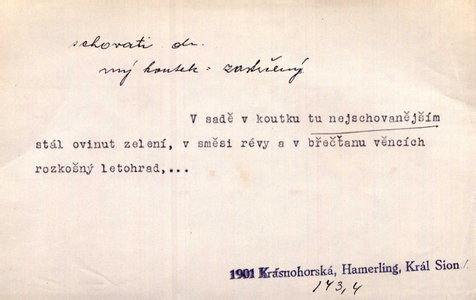 schovati dk.
ný koutek = zastrčený
V sadě v koutku tu nejschovanějším
stál ovinut zelení, v směsi révy a v břečťanu věncích
rozkošný letohrad,...
1901 Krásnohorská, Hamerling, Král Sion
143,4